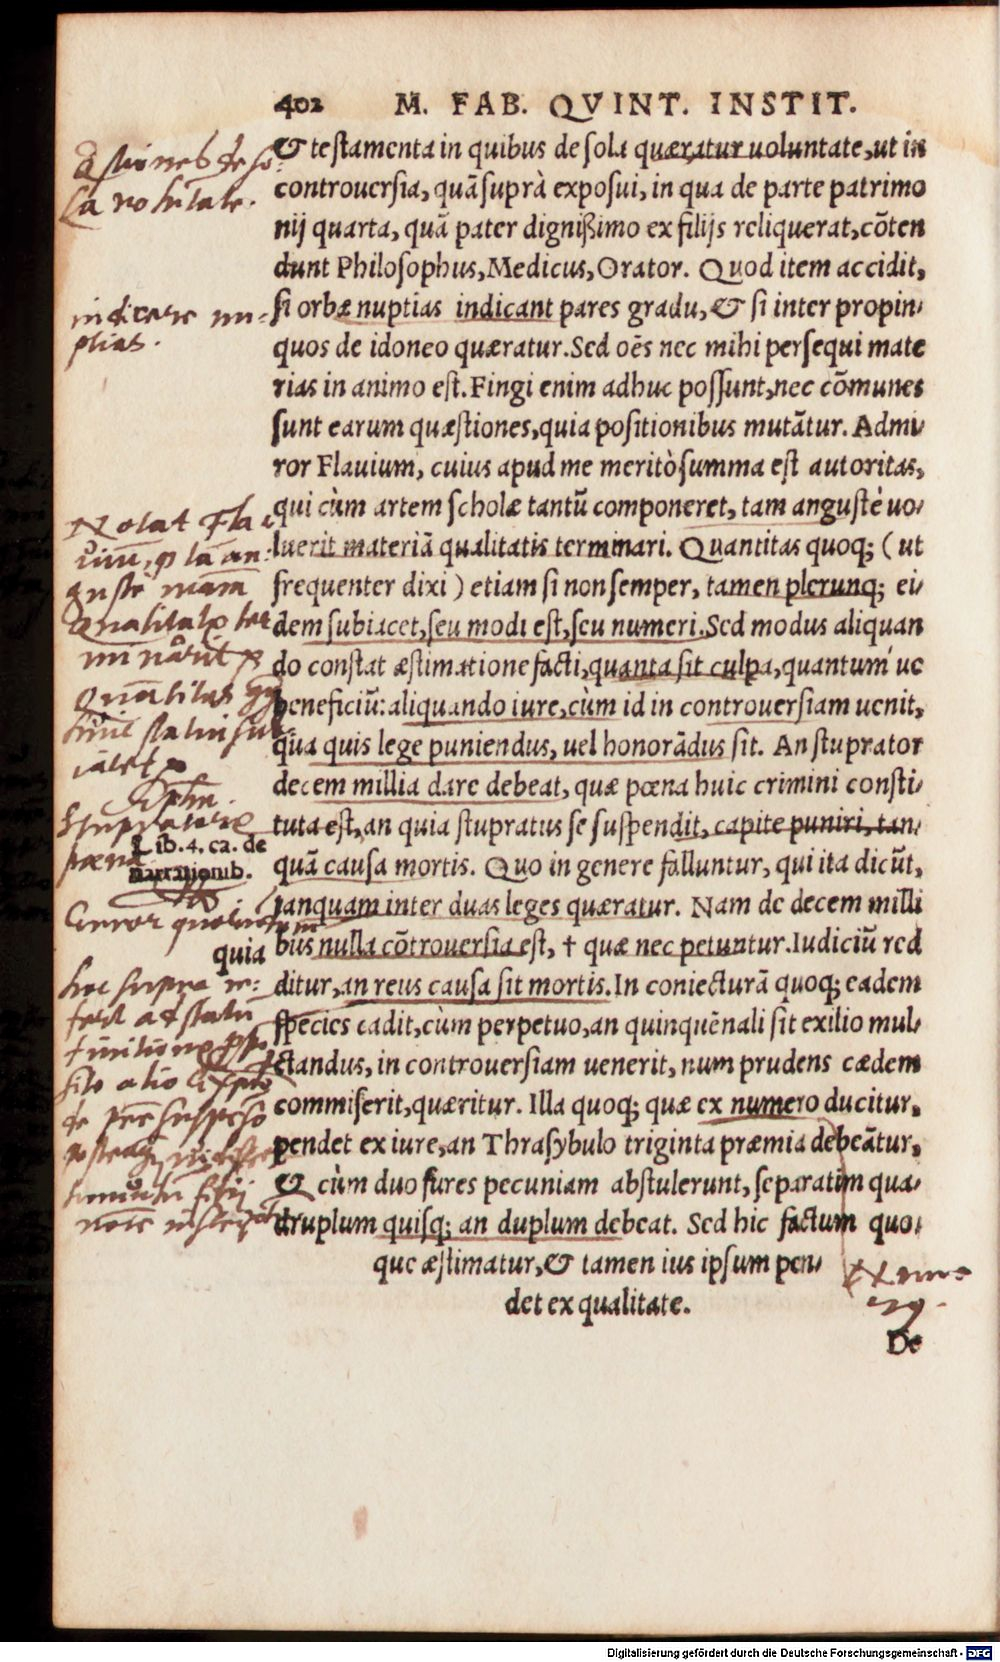 402 M. FAB. QVINT. INSTIT.
& testamenta in quibus de sola quæratur uoluntate, ut in
controuersia, quã suprà exposui, in qua de parte patrimo
nij quarta, quã pater dignißimo ex filijs reliquerat, cõten
dunt Philosophus, Medicus, Orator. Quod item accidit,
si orbæ nuptias indicant pares gradu, & si inter propin-
quos de idoneo quæratur. Sed oẽs nec mihi persequi mate
rias in animo est. Fingi enim adhuc possunt, nec cõmunes
sunt earum quæstiones, quia positionibus mutãtur. Admi-
ror Flauium, cuius apud me meritò summa est autoritas,
qui cùm artem scholæ tantũ componeret, tam angustè uo-
luerit materiã qualitatis terminari. Quantitas quoq; (ut
frequenter dixi) etiam si non semper, tamen plerunq; ei-
dem subiacet, seu modi est, seu numeri. Sed modus aliquan
do constat æstimatione facti, quanta sit culpa, quantum´ue
beneficiũ: aliquando iure, cùm id in controuersiam uenit,
qua quis lege puniendus, uel honorãdus sit. An stuprator
decem millia dare debeat, quæ pœna huic crimini consti-
tuta est, an quia stupratus se suspendit, capite puniri, tan-
quã causa mortis. Quo in genere falluntur, qui ita dicũt,
tanquam inter duas leges quæratur. Nam de decem milli
bus nulla cõtrouersia est, † quæ nec petuntur. Iudiciũ red
ditur, an reus causa sit mortis. In coniecturã quoq; eadem
species cadit, cùm perpetuo, an quinquẽnali sit exilio mul-
ctandus, in controuersiam uenerit, num prudens cædem
commiserit, quæritur. Illa quoq; quæ ex numero ducitur,
pendet ex iure, an Thrasybulo triginta præmia debeãtur,
& cùm duo fures pecuniam abstulerunt, separatim qua-
druplum quisq; an duplum debeat. Sed hic factum quo-
que æstimatur, & tamen ius ipsum pen-
det ex qualitate.
De
indicare nu-
ptias.
Notat Fla
Lib. 4. ca. de
narrationib.
quia
Digitalisierung gefördert durch die Deutsche Forschungsgemeinschaft - DFG